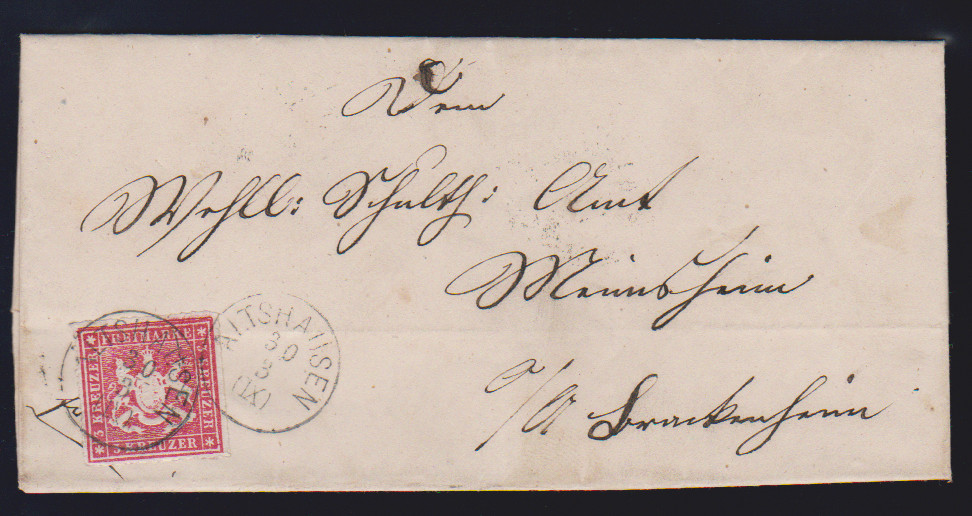 Dem
Wohll: Schulth: Amt
Meimsheim
O/A Brackenheim
FREIMARKE
3 KREUZER
3 KREUZER
3 KREUZER
ALTSHAUSEN
30
3
(IX)
ALTSHAUSEN
30
3